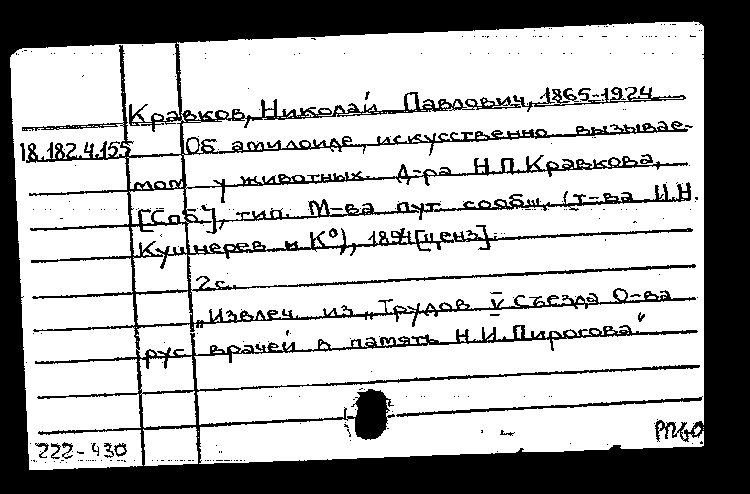 Кравков, Николай Павлович, 1865-1924
18.182.4.155 Об амилоиде, искусственно вызывае-
мом у животных. Д-ра Н.П.Кравкова,
[Спб.], тип. М-ва пут. сообщ. (т-ва И.Н.
Кушнерев и К°), 1894[ценз].
2с.
„Извлеч. из „Трудов V съезда О-ва
рус врачей в память Н.И.Пирогова."
222-430